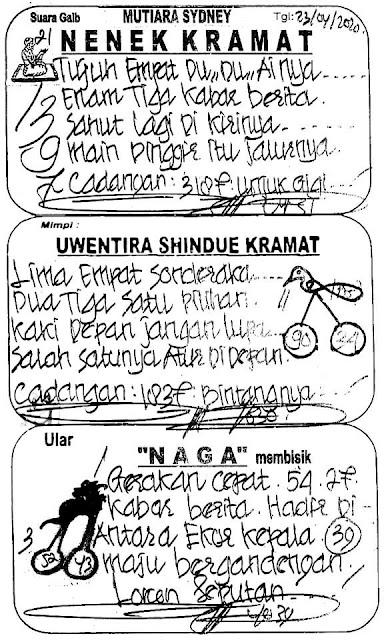 Suara Gaib MUTIARA SYDNEY Tgl: 23/04/2020
21 NENEK KRAMAT
Tujuh Empat Du,, Du,, Ainya
Enam Tiga Kabar berita.
13 Sahut lagi Di kirinya
9 main Pinggir itu jalurnya
7 Cadangan: 3107. untuk
Mimpi :
UWENTIRA SHINDUE KRAMAT
Lima Empat
Dua Tiga Satu Pilihan.
kaki Depan jangan lupa
90 24
Salah satunya Atur Di Depan
Cadangan: 1837. Bintangnya
Ular
"N A G A" membisik
Gerakan cepat. 54. 27.
kabar berita. Hadir Di
3 Antara Ekor kepala 39
52 43 maju bergandengan.